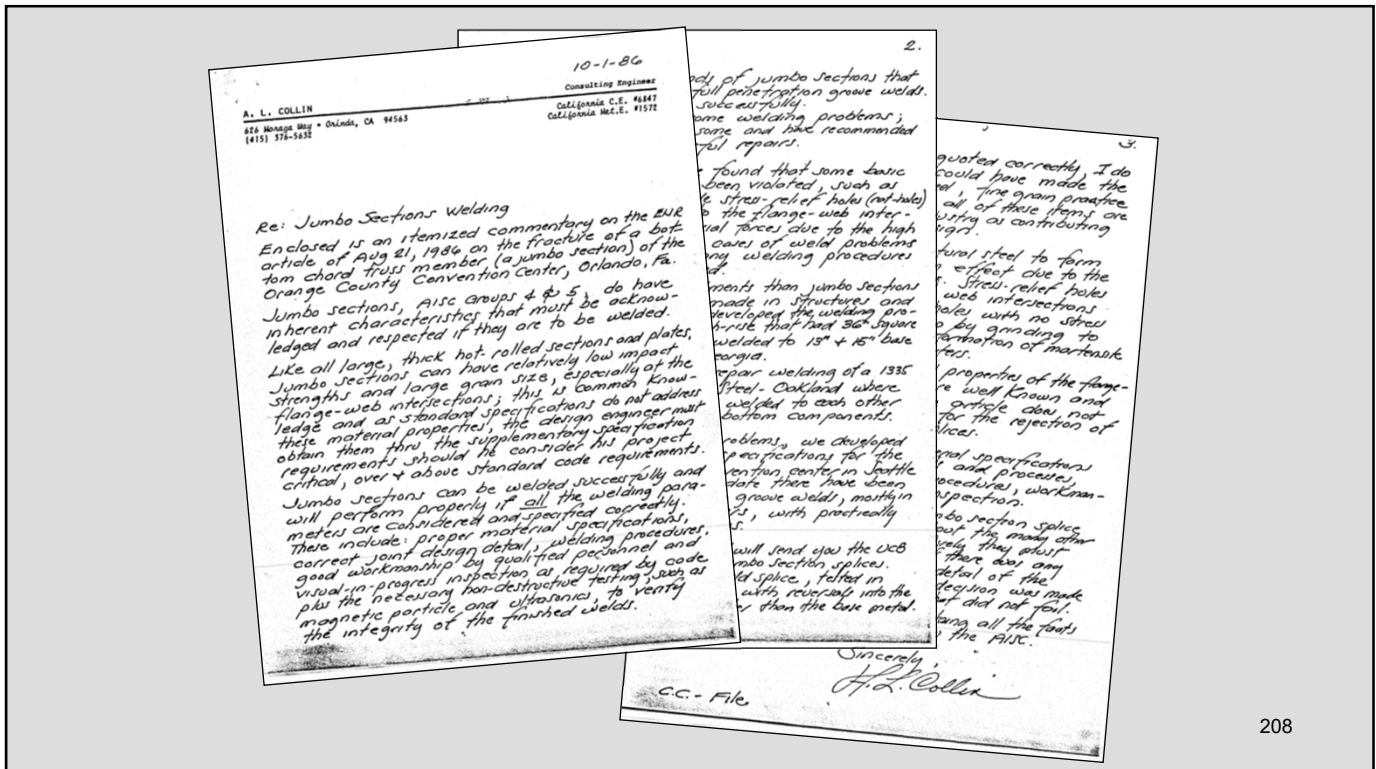 10-1-86
A. L. COLLIN
Consulting Engineer
626 Moraga Way • Orinda, CA 94563
California C.E. #6847
(415) 376-5632
California Met.E. #1572
Re: Jumbo Sections Welding
Enclosed is an itemized commentary on the ENR
article of Aug 21, 1986 on the fracture of a bot-
tom chord truss member (a jumbo section) of the
Orange County Convention Center, Orlando, Fa.
Jumbo sections, AISC Groups 4 & 5, do have
inherent characteristics that must be acknow-
ledged and respected if they are to be welded.
Like all large, thick hot-rolled sections and plates,
Jumbo sections can have relatively low impact
strengths and large grain size, especially at the
flange-web intersections; this is common know-
ledge and as standard specifications do not address
these material properties, the design engineer must
obtain them thru the supplementary specification
requirements should he consider his project
critical, over & above standard code requirements.
Jumbo sections can be welded successfully and
will perform properly if all the welding para-
meters are considered and specified correctly.
These include: proper material specifications,
correct joint design detail, welding procedures,
good workmanship by qualified personnel and
visual-in-progress inspection as required by code
plus the necessary non-destructive testing, such as
magnetic particle and ultrasonics, to verify
the integrity of the finished welds.
2.
ods of jumbo sections that
full penetration groove welds.
successfully.
ome welding problems;
some and have recommended
ful repairs.
found that some basic
been violated, such as
stress-relief holes (rat-holes)
the flange-web inter-
ial forces due to the high
cases of weld problems
ny welding procedures
ments than jumbo sections
made in structures and
developed the welding pro-
h-rise that had 36" square
welded to 13" & 15" base
eorgia.
repair welding of a 1335
Steel-Oakland where
welded to each other
bottom components.
roblems, we developed
specifications for the
vention center in Seattle
date there have been
groove welds, mostly in
rs, with practically
will send you the UCB
mbo section splices.
ld splice, tested in
with reversals into the
er than the base metal.
3.
quoted correctly, I do
could have made the
fine grain practice
all of these items are
ustry as contributing
sign.
tural steel to form
effect due to the
Stress-relief holes
web intersections
holes with no stress
by grinding to
formation of martensite
ters.
properties of the flange-
re well known and
article does not
for the rejection of
lices.
nal specifications
and processes,
ocedures, workman-
nspection.
bo section splice
out the many other
vely they must
there was any
detail of the
decision was made
t did not fail.
ing all the facts
the AISC.
Sincerely,
A. L. Collin
C.C. - File
208